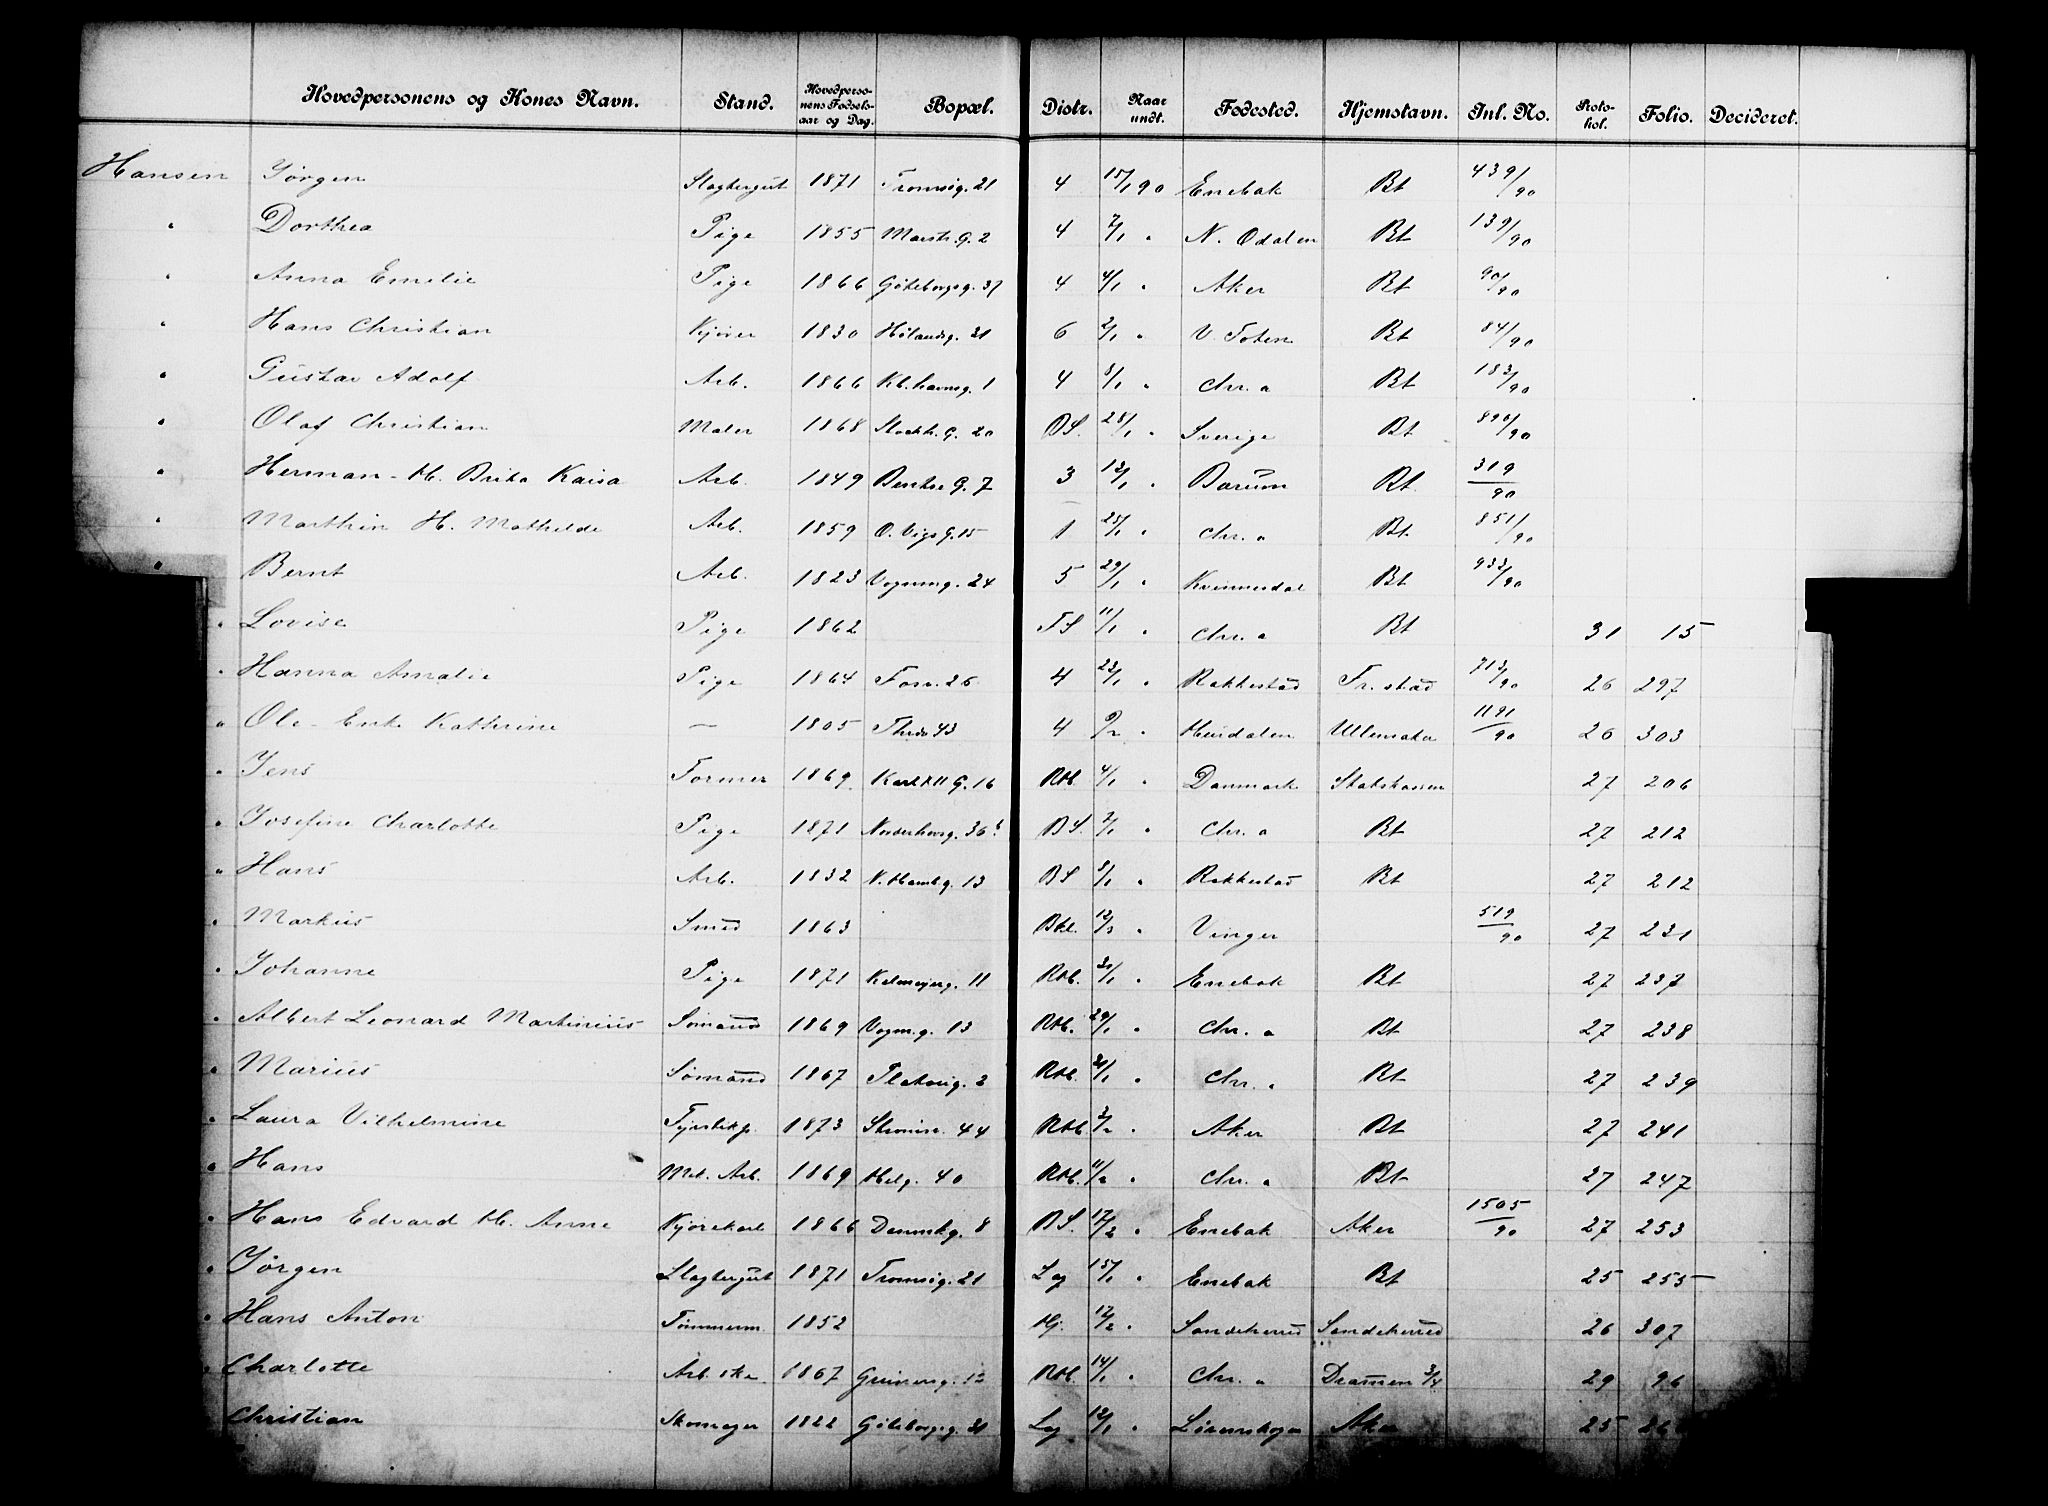 Hovedpersonens og Kones Navn. Stand. Hovedpersonens Fødselsaar og Dag. Bopæl. Distr. Naar undt. Fødested. Hjemstavn. Inl. No. Protokol. Folio. Decideret.
Hansen Jørgen Slagtergut 1871 Tromsøg. 21 4 15/1 90 Enebak Bt 439/90
" Dorthea Pige 1855 Marstr. G. 2 4 7/1 " N. Odalen Bt 139/90
" Anna Emilie Pige 1866 Göteborgsg. 37 4 4/1 " Aker Bt 90/90
" Hans Christian Kjører 1830 Hølandsg. 31 6 2/1 " V. Toten Bt 84/90
" Gustav Adolf Arb. 1866 Kb.havnsg. 1 4 8/1 " Chr. a Bt 183/90
" Olaf Christian Maler 1868 Stockh. G. 20 BS. 28/1 " Sverige Bt 890/90
" Herman - H. Brita Kaisa Arb. 1849 Bentse G. 7 3 13/1 " Barum Bt. 319/90
" Marthin H. Mathilde Arb. 1859 O. Vigs G. 15 1 25/1 " Chr. a Bt. 851/90
" Bernt Arb. 1823 Vognmg. 24 5 29/1 " Kvinnesdal Bt 933/90
" Lovise Pige 1862 FS 11/1 " Chr. a Bt 31 15
" Hanna Amalie Pige 1864 Fossv. 26 4 23/1 " Rakkestad Fr. stad 713/90 26 297
" Ole - Enke Kathrine — 1805 Thrds 43 4 9/2 " Hurdalen Ullensaker 1191/90 26 303
" Jens Former 1869 Karl XII G. 16 RH. 4/1 " Danmark Statskassen 27 206
" Josefine Charlotte Pige 1871 Norderhovsg. 36 b BS. 7/1 " Chr. a Bt 27 212
" Hans Arb. 1832 N. Hambg. 13 BS 8/1 " Rakkestad Bt 27 212
" Markus Smed 1863 12/3 " Vinger 519/90 27 231
" Johanne Pige 1871 Kalmeyerg. 11 RH. 31/1 " Enebak Bt 27 237
" Albert Leonard Martinius Sømand 1869 Vognm.g. 13 RH. 29/1 " Chr. a Bt 27 238
" Marius Sømand 1867 Platousg. 2 RH. 31/1 " Chr. a Bt 27 239
" Laura Vilhelmine Fyrstikp. 1873 Strømsv. 44 RH. 3/2 " Aker Bt 27 241
" Hans Mek. Arb. 1869 Helg. 40 RH. 11/2 " Chr. a Bt 27 247
" Hans Edvard H. Anne Kjørekarl 1866 Danmkg. 8 BS. 17/2 " Enebak Aker 1505/90 27 253
" Jørgen Slagtergut 1871 Tromsøg. 21 Lag 15/1 " Enebak Bt 25 255
" Hans Anton Tømmerm. 1852 Hj. 12/2 " Sandeherred Sandeherred 26 307
" Charlotte Arb.ske 1867 Grünersg. 12 RH. 14/1 " Chr. a Dramen 3/4 29 96
Christian Skomager 1822 Göteborgsg. 31 Lag 12/1 " Lørenskogen Aker 25